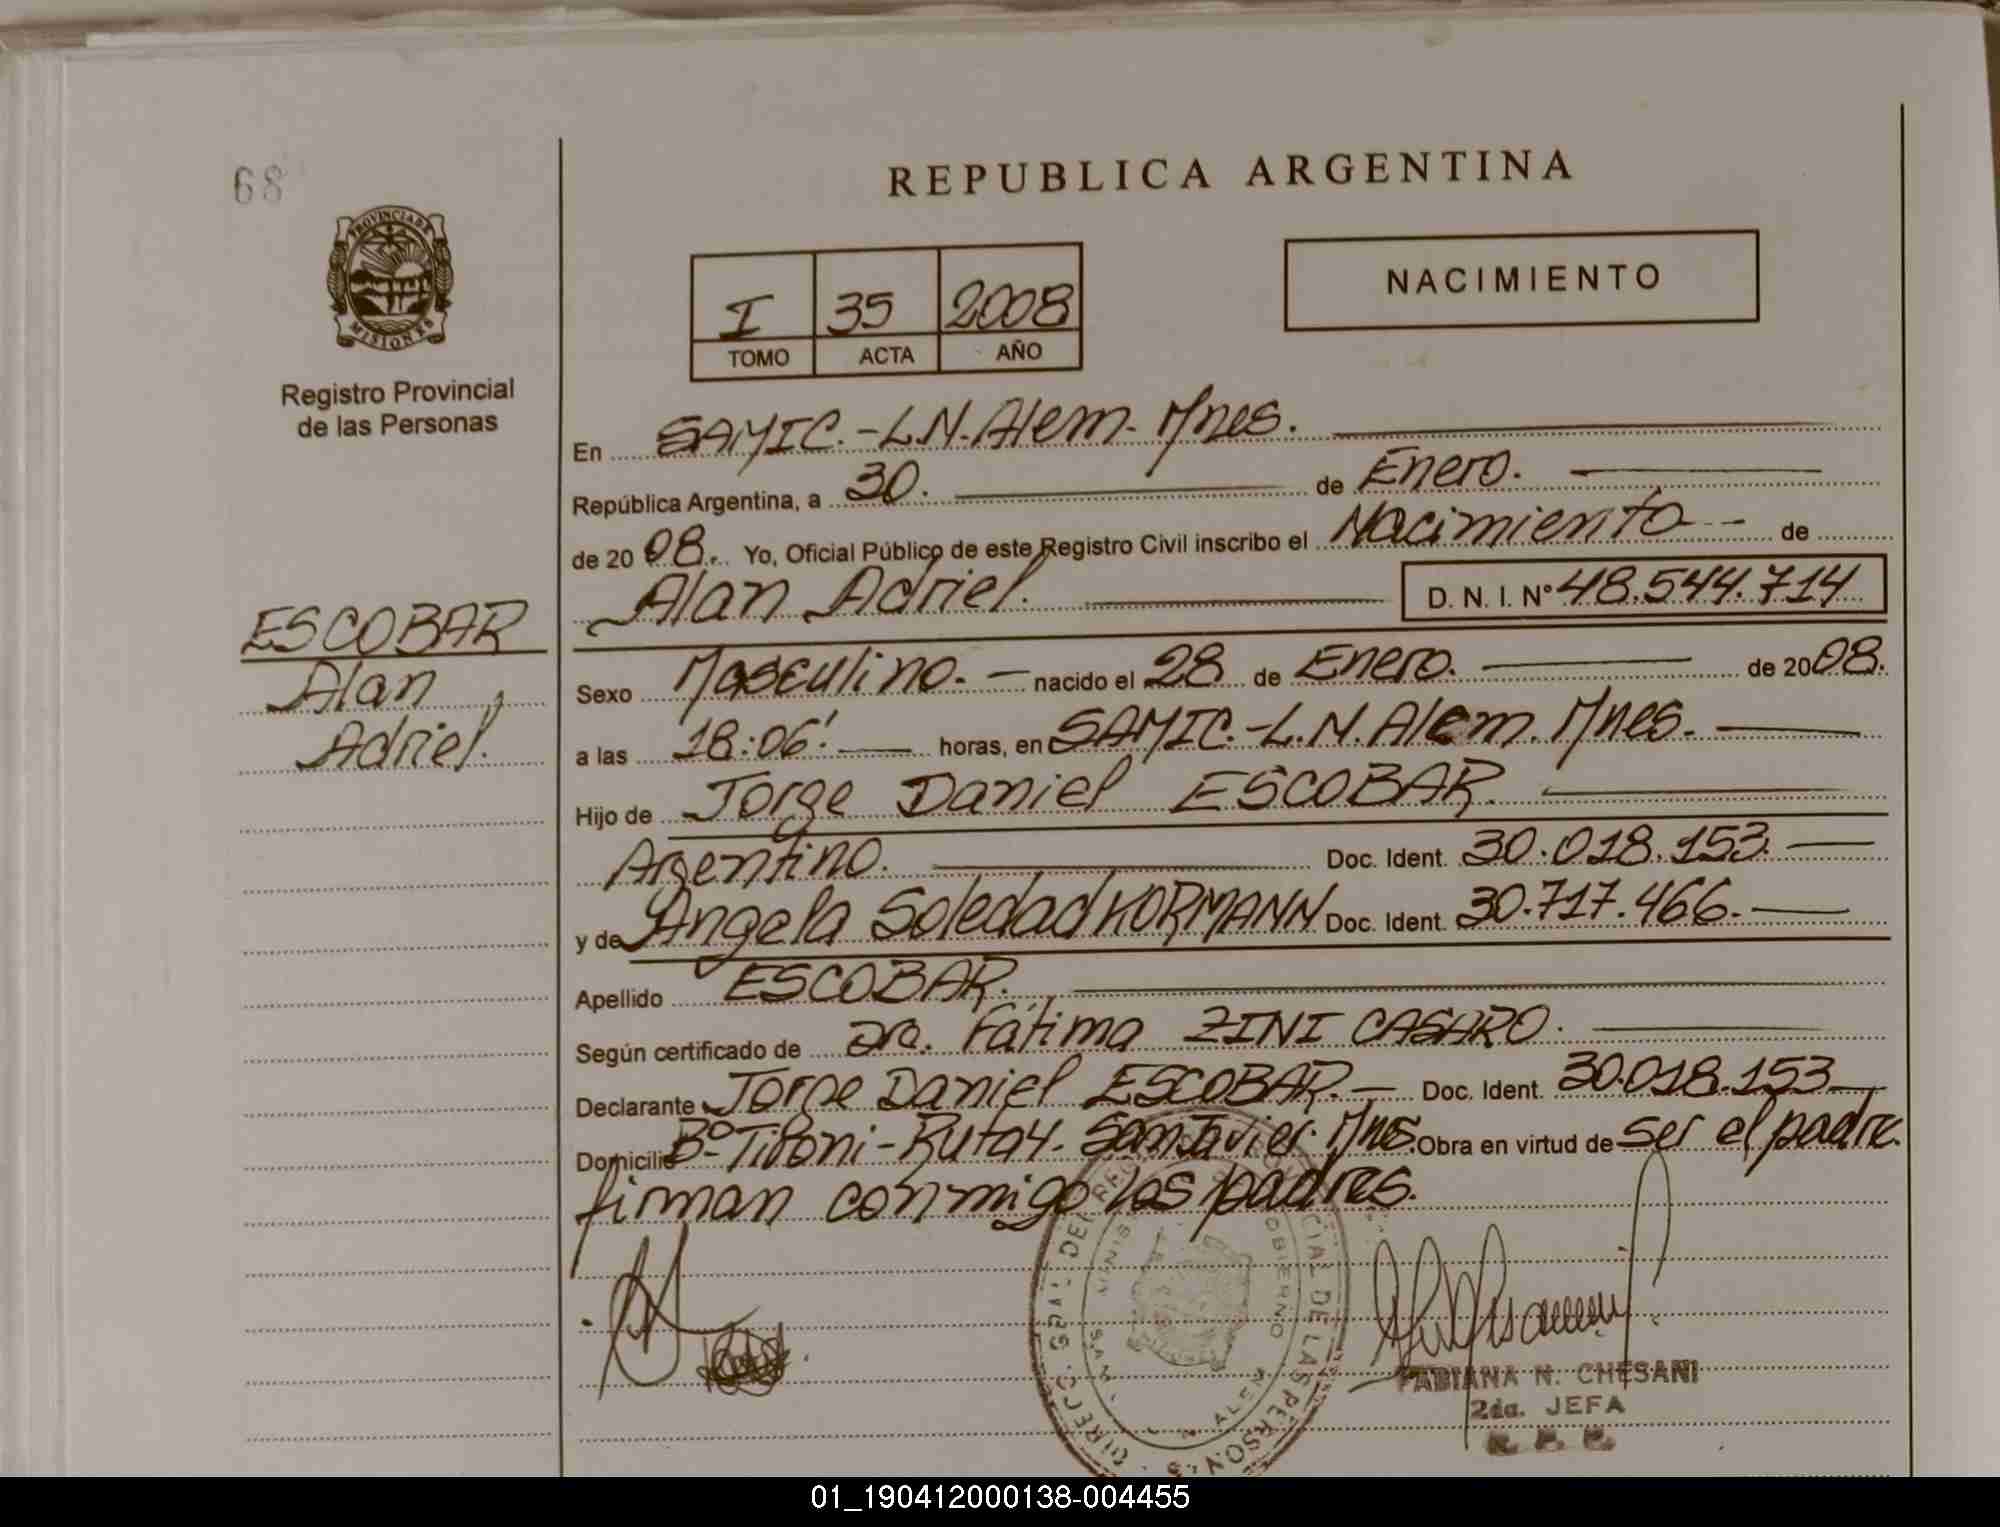 68
REPUBLICA ARGENTINA
PROVINCIA DE
MISIONES
Registro Provincial
de las Personas
I 35 2008
TOMO ACTA AÑO
NACIMIENTO
En SAMIC.-L.N.Alem. Mnes.
República Argentina, a 30. de Enero.
de 20 08. Yo, Oficial Público de este Registro Civil inscribo el Nacimiento - de
Alan Adriel. D. N. I. N° 48.544.714
ESCOBAR
Alan
Adriel.
Sexo Masculino. nacido el 28 de Enero. de 2008.
a las 18:06' horas, en SAMIC.-L.N.Alem. Mnes.
Hijo de Jorge Daniel ESCOBAR.
Argentino. Doc. Ident. 30.018.153.
y de Angela Soledad KORMANN Doc. Ident. 30.717.466.
Apellido ESCOBAR.
Según certificado de Dra. Fátima ZINI CASARO.
Declarante Jorge Daniel ESCOBAR. Doc. Ident. 30.018.153
Domicilio B° Tiboni-Ruta 4. San Javier. Mnes. Obra en virtud de ser el padre.
firman conmigo los padres.
DIREC. GRAL DEL REG. PROVINCIAL DE LAS PERSONAS
GOBIERNO
L. N. ALEM
FABIANA N. CHESANI
2da. JEFA
R. P. P.
01_190412000138-004455